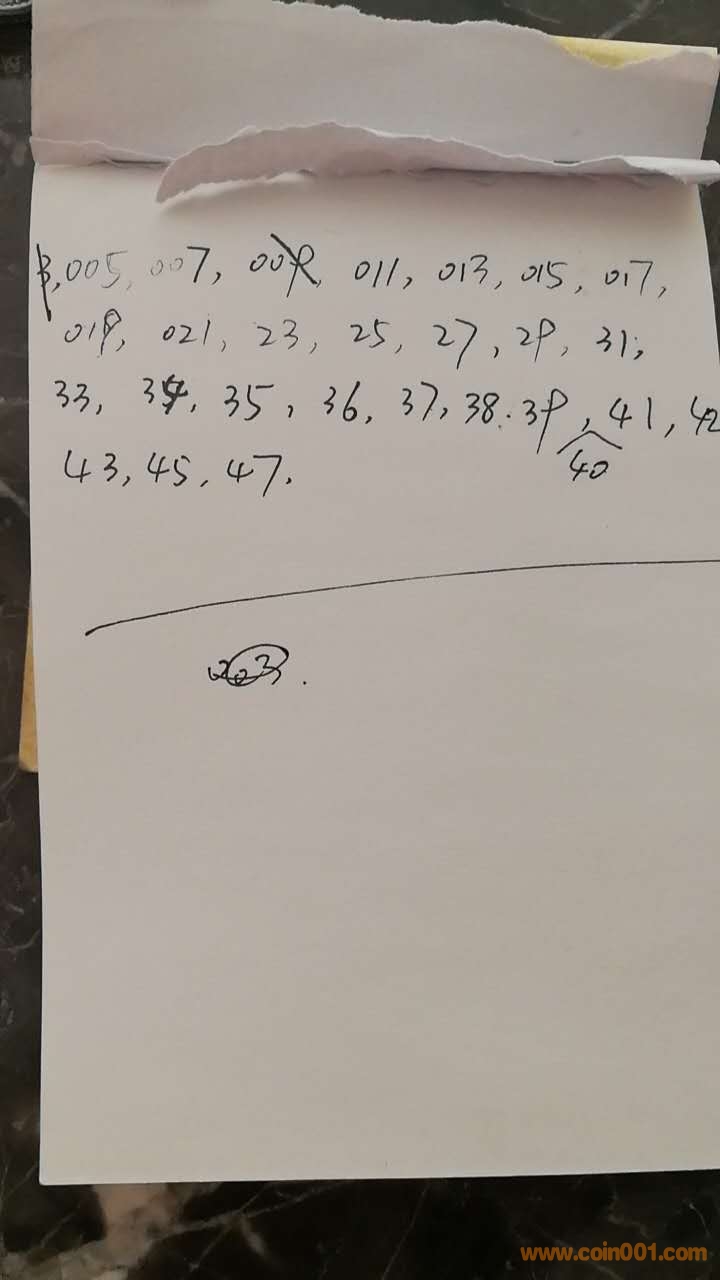 3, 005, 007, 009, 011, 013, 015, 017,
019, 021, 23, 25, 27, 29, 31,
33, 34, 35, 36, 37, 38. 39, 41, 42
40
43, 45, 47.
www.coin001.com